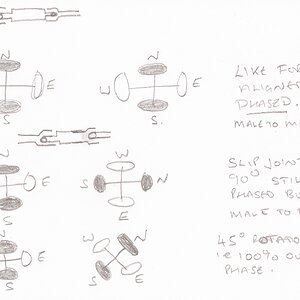 N
N
E
W
E
S
S.
LIKE FOR
ALIGNE
PHASED.
MALE TO M
N
W
E
S
N
S
E
SLIP JOINT
90° STIL
PHASED BU
MALE TO F
N
W
N
E
S
S
E
45° ROTATO
ie 100% OU
PHASE.